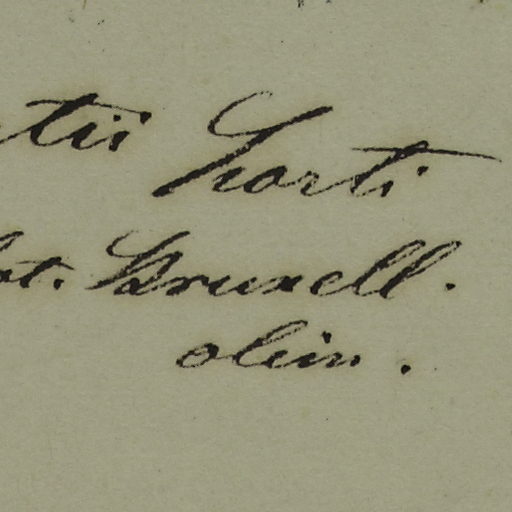 tii Horti
bot. Bruxell.
olim.